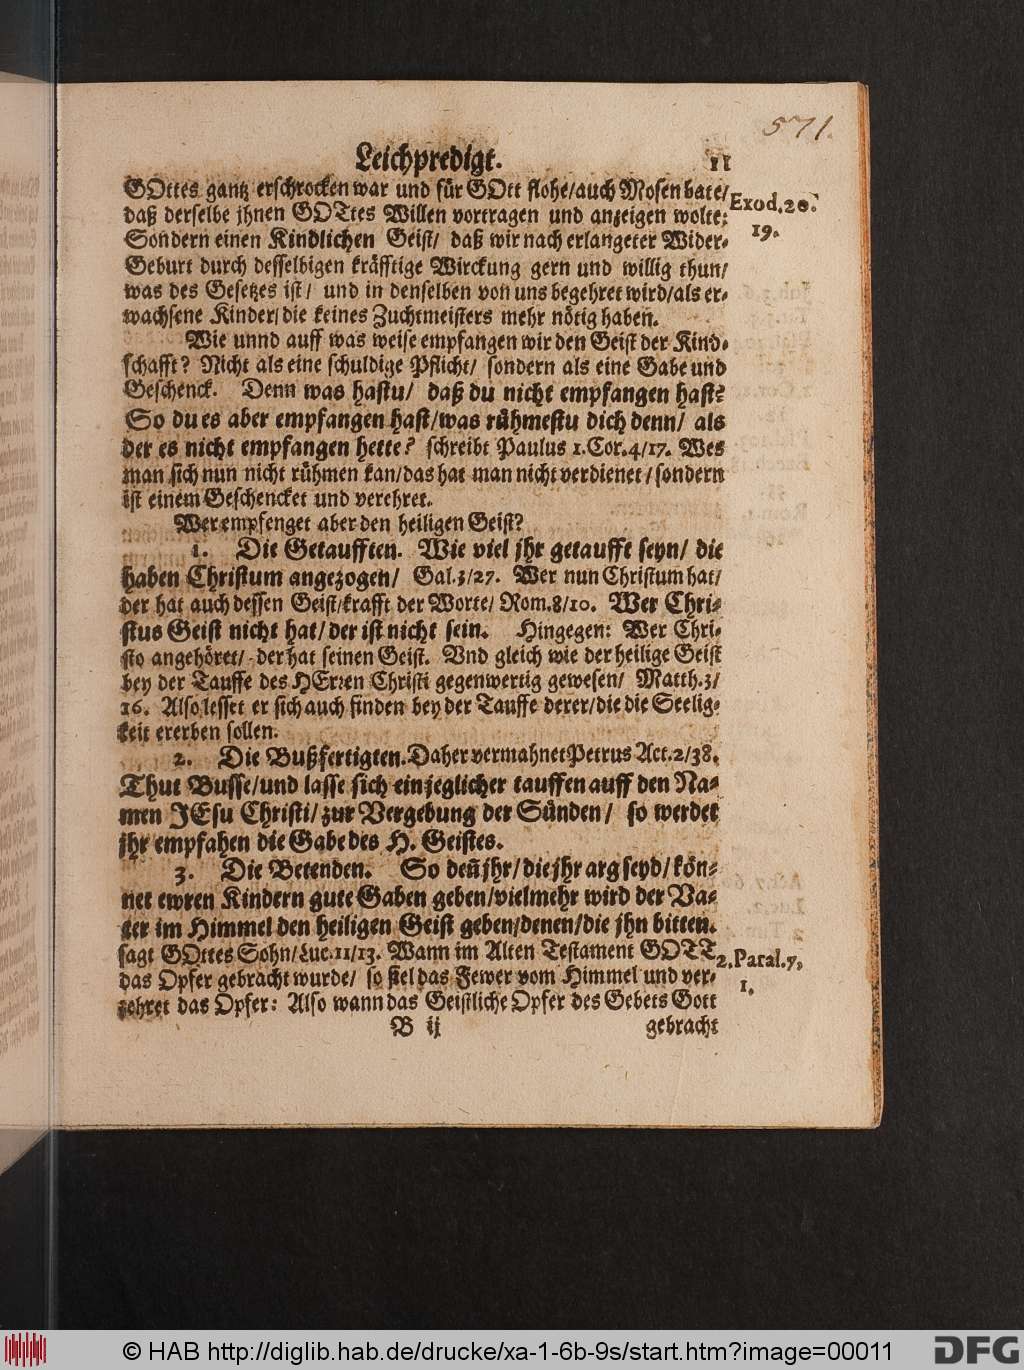 571.
Leichpredigt. 11
GOttes gantz erschrocken war und für GOtt flohe/auch Mosen bate/
daß derselbe jhnen GOTtes Willen vortragen und anzeigen wolte:
Exod.20.
19.
Sondern einen Kindlichen Geist/ daß wir nach erlangeter Wider-
Geburt durch desselbigen kräfftige Wirckung gern und willig thun/
was des Gesetzes ist/ und in denselben von uns begehret wird/als er-
wachsene Kinder/die keines Zuchtmeisters mehr nötig haben.
Wie unnd auff was weise empfangen wir den Geist der Kind-
schafft? Nicht als eine schuldige Pflicht/ sondern als eine Gabe und
Geschenck. Denn was hastu/ daß du nicht empfangen hast?
So du es aber empfangen hast/was rühmestu dich denn/ als
der es nicht empfangen hette? schreibt Paulus 1.Cor.4/17. Wes
man sich nun nicht rühmen kan/das hat man nicht verdienet/sondern
ist einem Geschencket und verehret.
Wer empfenget aber den heiligen Geist?
1. Die Getaufften. Wie viel jhr getaufft seyn/ die
haben Christum angezogen/ Gal.3/27. Wer nun Christum hat/
der hat auch dessen Geist/krafft der Worte/ Rom.8/10. Wer Chri-
stus Geist nicht hat/der ist nicht sein. Hingegen: Wer Chri-
sto angehöret/ der hat seinen Geist. Vnd gleich wie der heilige Geist
bey der Tauffe des HErren Christi gegenwertig gewesen/ Matth.3/
16. Also lesset er sich auch finden bey der Tauffe derer/die die Seelig-
keit ererben sollen.
2. Die Bußfertigten. Daher vermahnet Petrus Act.2/38.
Thut Busse/und lasse sich ein jeglicher tauffen auff den Na-
men JEsu Christi/zur Vergebung der Sünden/ so werdet
jhr empfahen die Gabe des H. Geistes.
3. Die Betenden. So deñ jhr/die jhr arg seyd/kön-
net ewren Kindern gute Gaben geben/vielmehr wird der Va-
ter im Himmel den heiligen Geist geben/denen/die jhn bitten.
sagt GOttes Sohn/Luc.11/13. Wann im Alten Testament GOTT
2.Paral.7,
1.
das Opfer gebracht wurde/ so fiel das Fewer vom Himmel und ver-
zehret das Opfer: Also wann das Geistliche Opfer des Gebets Gott
B ij gebracht
© HAB http://diglib.hab.de/drucke/xa-1-6b-9s/start.htm?image=00011
DFG